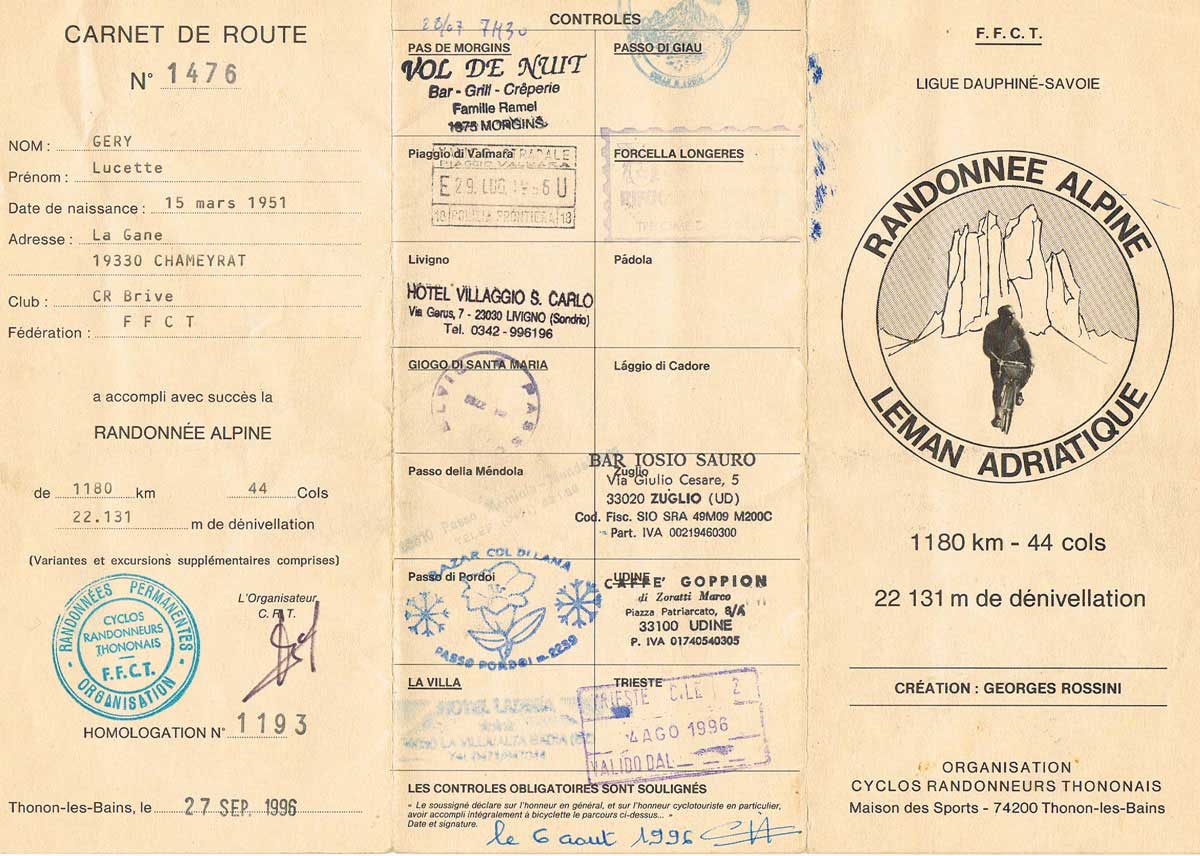 CARNET DE ROUTE
N° 1476
NOM : GERY
Prénom : Lucette
Date de naissance : 15 mars 1951
Adresse : La Gane
19330 CHAMEYRAT
Club : CR Brive
Fédération : F F C T
a accompli avec succès la
RANDONNÉE ALPINE
de 1180 km 44 Cols
22.131 m de dénivellation
(Variantes et excursions supplémentaires comprises)
RANDONNÉES PERMANENTES
CYCLOS
RANDONNEURS
THONONAIS
F.F.C.T.
ORGANISATION
L'Organisateur
C. R. T.
HOMOLOGATION N° 1193
Thonon-les-Bains, le 27 SEP. 1996
28/07 7H30
CONTROLES
PAS DE MORGINS
VOL DE NUIT
Bar - Grill - Crêperie
Famille Ramel
1875 MORGINS
Piaggio di Valmara
PIAGGIO VALMARA
E 29. LUG. 1996 U
18 POLIZIA FRONTIERA 18
Livigno
HOTEL VILLAGGIO S. CARLO
Via Gerus, 7 - 23030 LIVIGNO (Sondrio)
Tel. 0342 - 996196
GIOGO DI SANTA MARIA
PASSO
Passo della Méndola
Passo di Pordoi
BAZAR COL DI LANA
PASSO PORDOI m. 2239
LA VILLA
HOTEL LADINIA
LA VILLA/ALTA BADIA
PASSO DI GIAU
FORCELLA LONGERES
Pâdola
Lággio di Cadore
Zuglio
BAR IOSIO SAURO
Via Giulio Cesare, 5
33020 ZUGLIO (UD)
Cod. Fisc. SIO SRA 49M09 M200C
Part. IVA 00219460300
UDINE
CAFFE' GOPPION
di Zoratti Marco
Piazza Patriarcato, 8/A
33100 UDINE
P. IVA 01740540305
TRIESTE
TRIESTE C.LE 2
4 AGO 1996
VALIDO DAL
LES CONTROLES OBLIGATOIRES SONT SOULIGNÉS
« Le soussigné déclare sur l'honneur en général, et sur l'honneur cyclotouriste en particulier,
avoir accompli intégralement à bicyclette le parcours ci-dessus... »
Date et signature.
le 6 aout 1996
F. F. C. T.
LIGUE DAUPHINÉ-SAVOIE
RANDONNEE ALPINE
LEMAN ADRIATIQUE
1180 km - 44 cols
22 131 m de dénivellation
CRÉATION : GEORGES ROSSINI
ORGANISATION
CYCLOS RANDONNEURS THONONAIS
Maison des Sports - 74200 Thonon-les-Bains